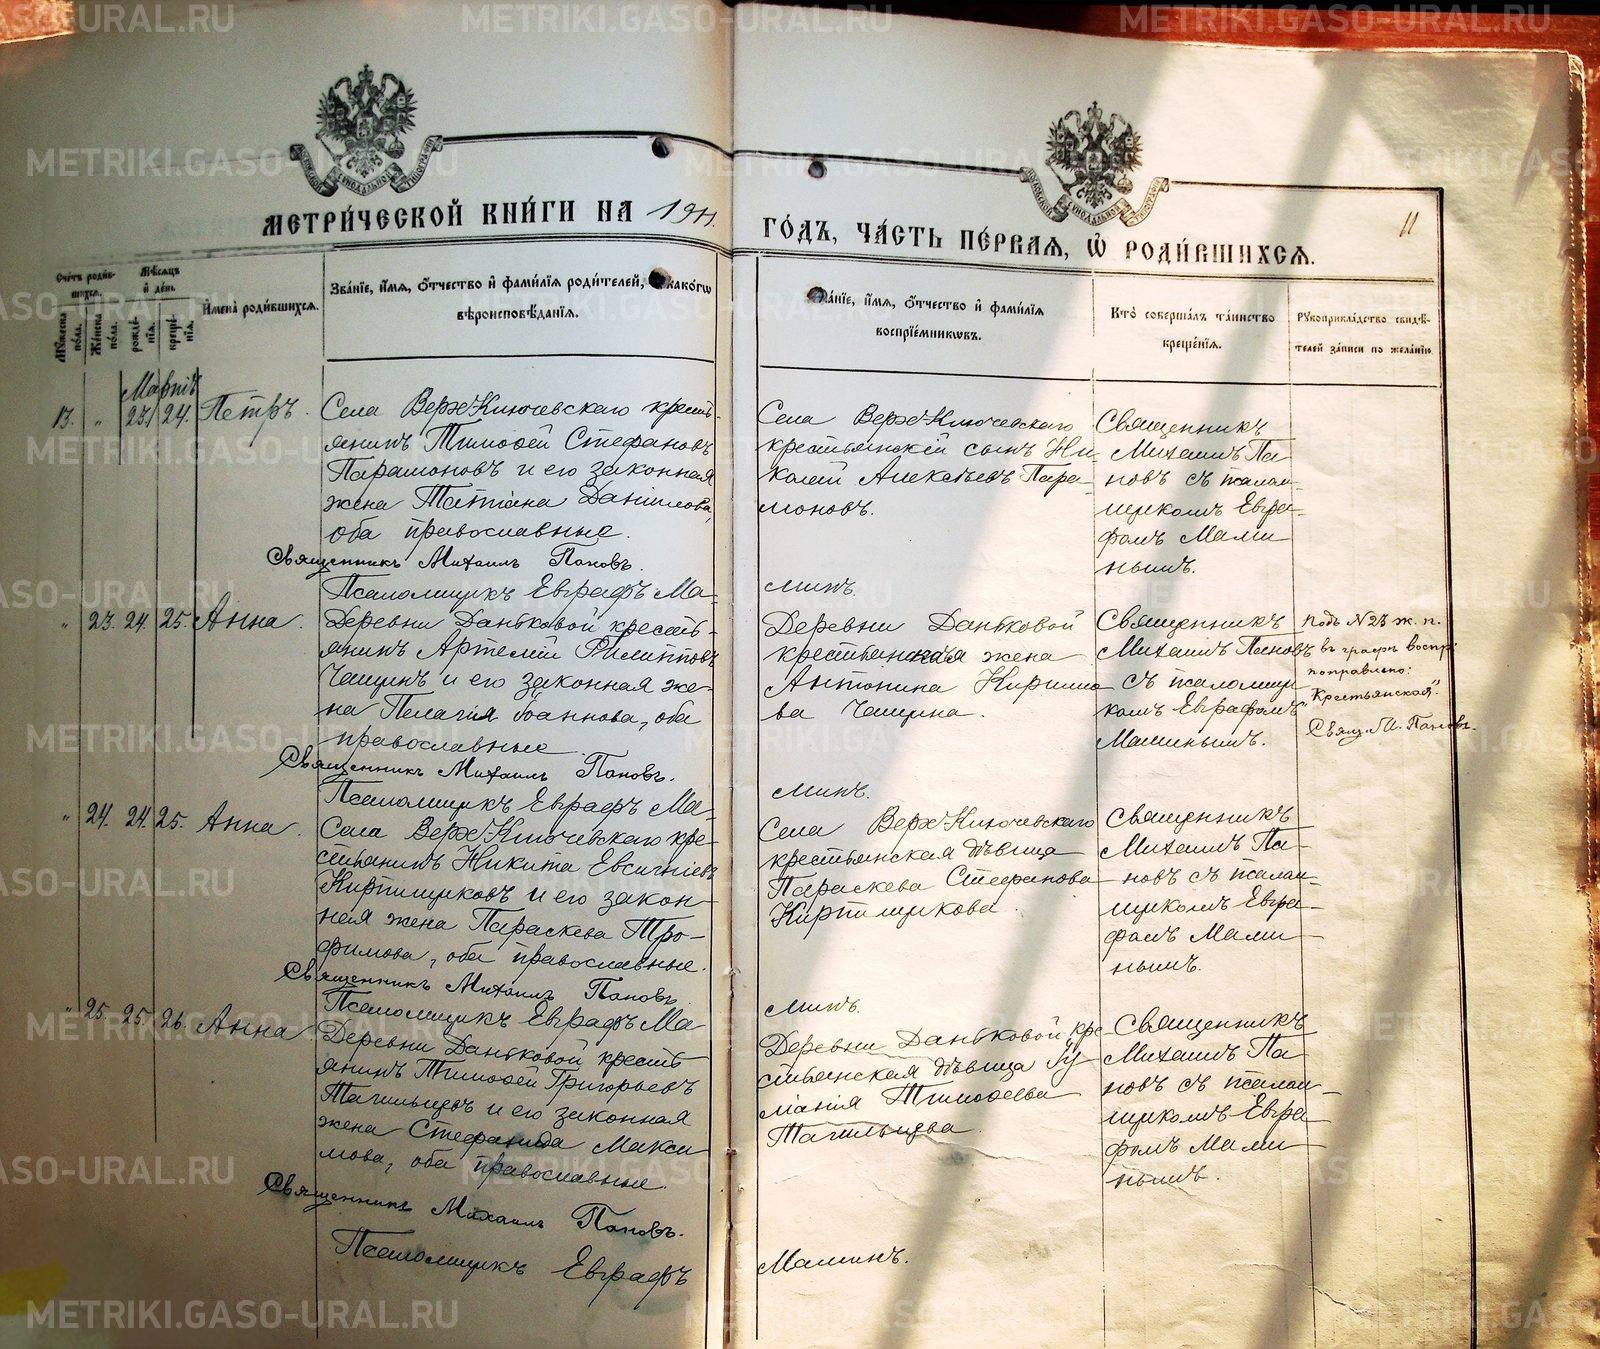 METRIKI.GASO-URAL.RU
МЕТРИ́ЧЕСКОЙ КНИ́ГИ НА 1911.
ГО́ДЪ, ЧА́СТЬ ПЕ́РВАЯ, Ѿ РОДИ́ВШИХСЯ.
11
Сче́тъ роди́в-
шихся.
Му́жеска по́ла.
Же́нска по́ла.
Мѣ́сяцъ
и де́нь
рожде́-
нїя.
креще́-
нїя.
Имена̀ роди́вшихся.
Зва́нїе, и́мя, о́тчество и фами́лїя роди́телей, и како́гѡ
вѣроисповѣ́данїя.
Зва́нїе, и́мя, о́тчество и фами́лїя
воспрїе́мникѡвъ.
Кто̀ соверша́лъ та́инство
креще́нїя.
Рукоприкла́дство свидѣ́-
телей за́писи по жела́нїю
Мартъ
13. „ 23 24. Петръ.
Села Верх-Ключевскаго кресть-
янинъ Тимофей Стефановъ
Парамоновъ и его законная
жена Татіана Даніилова,
оба православные.
Священникъ Михаилъ Пановъ.
Псаломщикъ Евграфъ Ма-
Села Верх-Ключевскаго
крестьянскій сынъ Ни-
колай Алексѣевъ Пара-
моновъ.
минъ.
Священникъ
Михаилъ Па-
новъ съ псалом-
щикомъ Евгра-
фомъ Мами-
нымъ.
„ 23. 24. 25. Анна.
Деревни Даньковой кресть-
янинъ Артемій Филипповъ
Чащинъ и его законная же-
на Пелагія Іоаннова, оба
православные
Священникъ Михаилъ Пановъ.
Псаломщикъ Евграфъ Ма-
Деревни Даньковой
крестьянская жена
Антонина Кирилло-
ва Чащина.
минъ.
Священникъ
Михаилъ Пановъ
съ псаломщи-
комъ Евграфомъ
Маминымъ.
Подъ № 23 ж. п.
въ графѣ воспр.
поправлено:
"Крестьянская".
Свящ. М. Пановъ.
„ 24. 24. 25. Анна.
Села Верх-Ключевскаго кре-
стьянинъ Никита Евсигніевъ
Кирпищиковъ и его закон-
ная жена Параскева Тро-
фимова, оба православные.
Священникъ Михаилъ Пановъ.
Псаломщикъ Евграфъ Ма-
Села Верх-Ключевскаго
крестьянская дѣвица
Параскева Стефанова
Кирпищикова.
минъ.
Священникъ
Михаилъ Па-
новъ съ псалом-
щикомъ Евгра-
фомъ Мами-
нымъ.
„ 25. 25. 26. Анна
Деревни Даньковой кресть-
янинъ Тимофей Григорьевъ
Тагильцевъ и его законная
жена Стефанида Макси-
мова, оба православные.
Священникъ Михаилъ Пановъ.
Псаломщикъ Евграфъ
Деревни Даньковой кре-
стьянская дѣвица Іу-
ліанія Тимофеева
Тагильцева.
Маминъ.
Священникъ
Михаилъ Па-
новъ съ псалом-
щикомъ Евгра-
фомъ Мами-
нымъ.